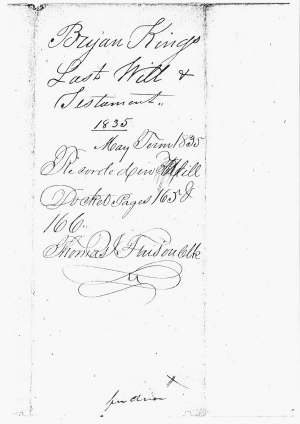 Bryan Kings
Last Will &
Testament..
1835
May Term 1835
Recorded in Will
Docket Pages 165 &
166..
Thomas J Clk